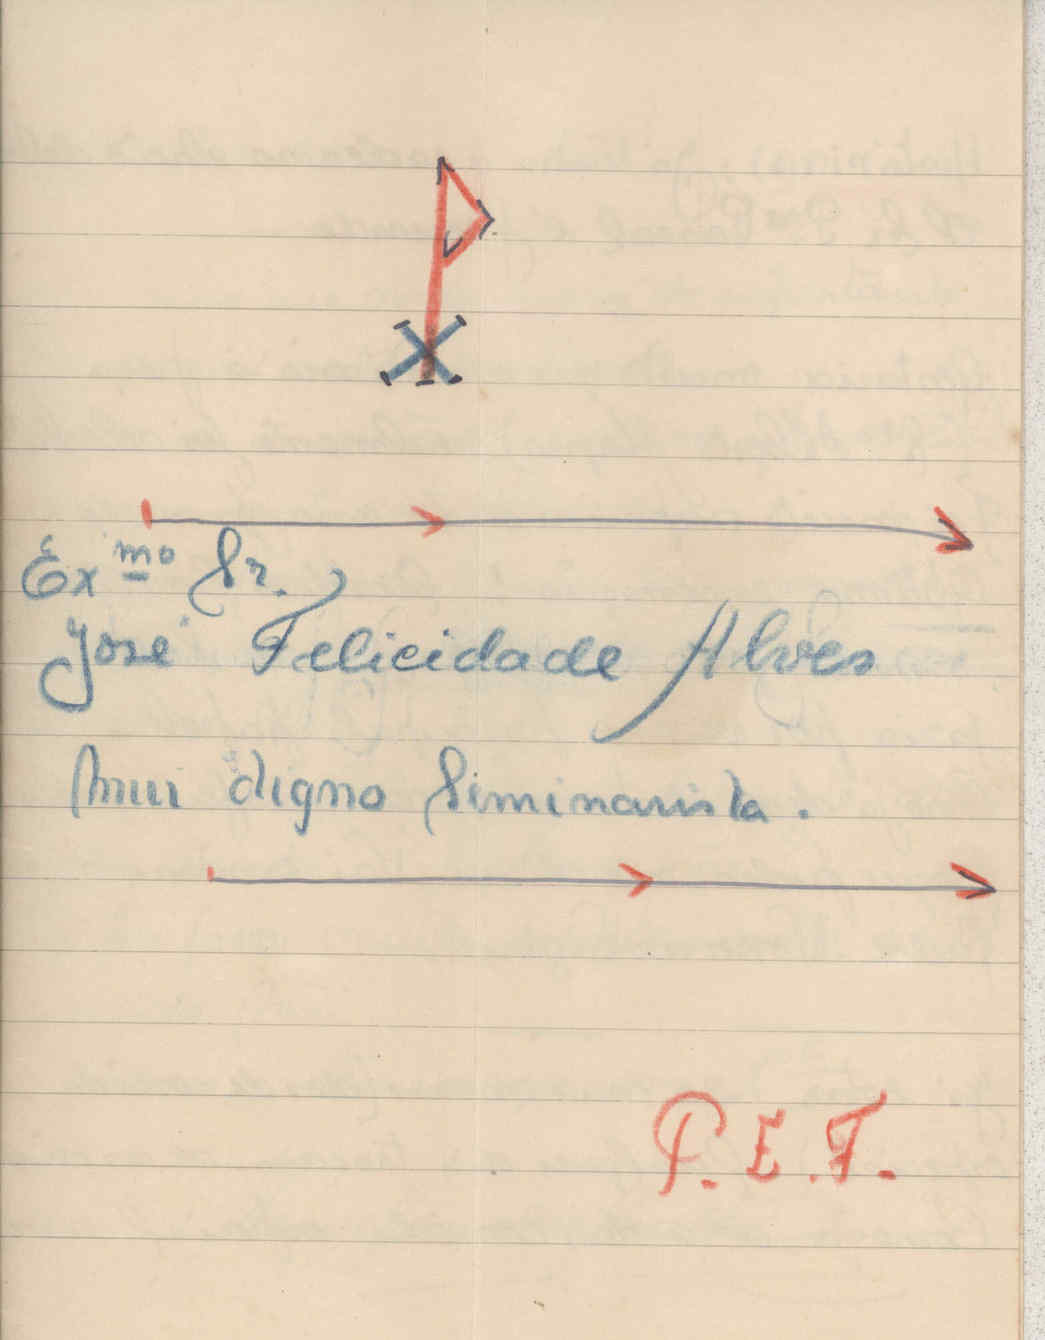 Exmo Sr.
José Felicidade Alves
Mui digno Siminarista.
P. E. F.